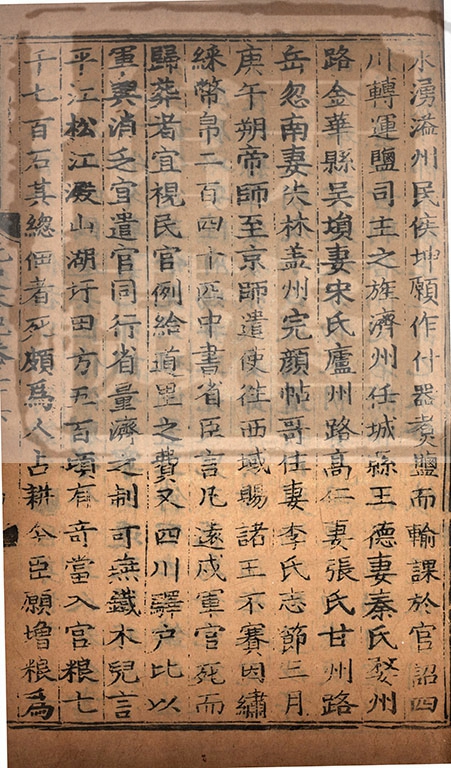 水湧溢州民侯坤願作什器煑鹽而輸課於官詔四
川轉運鹽司主之旌濟州任城縣王德妻秦氏婺州
路金華縣吴塤妻宋氏廬州路髙仁妻張氏甘州路
岳忽南妻失林盖州完顔帖哥住妻李氏志節三月
庚午朔帝師至京師遣使徃西域賜諸王不賽因繡
綵幣帛二百四十匹中書省臣言凡遠戍軍官死而
歸葬者宜視民官例給道里之費又四川驛户比以
軍興消乏宜遣官同行省量濟之制可燕鐵木兒言
平江松江澱山湖圩田方五百頃有竒當入官粮七
千七百石其總佃者死頗爲人占耕今臣願增粮爲